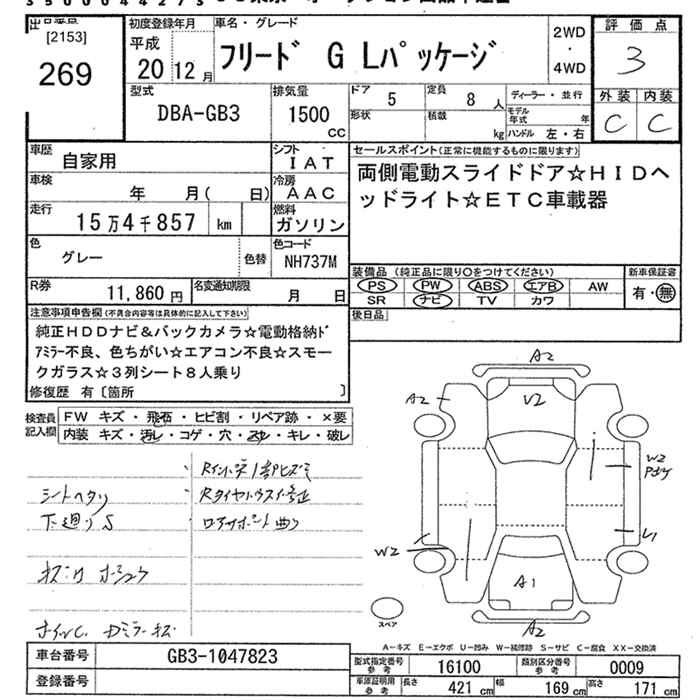 [2153]
269
初度登録年月
平成
20 12 月
車名・グレード
フリード G Lパッケージ
2WD
・
4WD
評価点
3
外装 内装
C C
型式
DBA-GB3
排気量
1500
CC
ドア
5
定員
8 人
形状
積載
kg
ディーラー・並行
モデル年式 年
ハンドル 左・右
車歴
自家用
シフト
IAT
車検
年 月( 日)
冷房
AAC
走行
15万4千857 km
燃料
ガソリン
色
グレー
色替
色コード
NH737M
R券
11,860 円
名変通知期限
月 日
セールスポイント(正常に機能するものに限ります)
両側電動スライドドア☆HIDヘ
ッドライト☆ETC車載器
装備品 (純正品に限り○をつけてください)
新車保証書
PS PW ABS エアB AW
SR ナビ TV カワ
有・無
後日品
注意事項申告欄(不具合内容等は具体的に記入して下さい)
純正HDDナビ&バックカメラ☆電動格納ド
アミラー不良、色ちがい☆エアコン不良☆スモー
クガラス☆3列シート8人乗り
修復歴 有〔箇所 〕
検査員
記入欄
FW キズ・飛石・ヒビ割・リペア跡・×要
内装 キズ・汚レ・コゲ・穴・スレ・キレ・破レ
シートヘタリ
下廻りS
A2
A2
V2
W2
W2
A1
A2
スペア
A－キズ E－エクボ U－凹み W－補修跡 S－サビ C－腐食 XX－交換済
車台番号
GB3-1047823
登録番号
型式指定番号
参考
16100
類別区分番号
参考
0009
車原証明用
参考
長さ 421 cm
幅 169 cm
高さ 171 cm